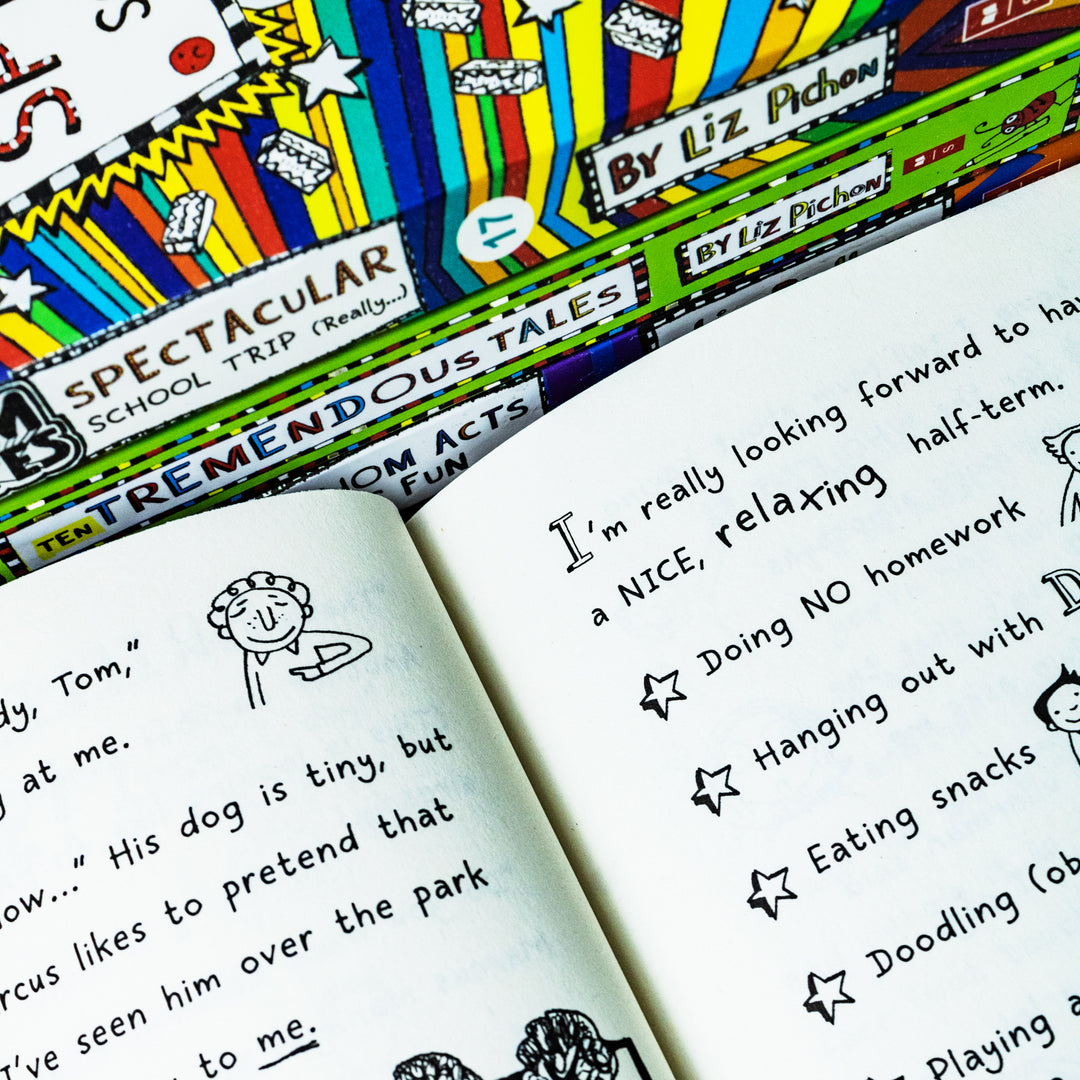 BY Liz Pichon
17
SPECTACULAR
SCHOOL TRIP (Really...)
BY Liz Pichon
TEN TREMENDOUS TALES
ACTS
FUN
Tom,”
at me.
His dog is tiny, but
likes to pretend that
I've seen him over the park
to me.
I'm really looking forward to
a NICE, relaxing half-term.
Doing NO homework
Hanging out with
Eating snacks
Doodling
Playing